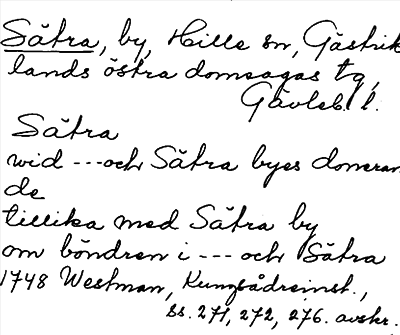 Sätra, by, Hille sn, Gästrik
lands östra domsagas tg,
Gävleb. l.
Sätra
wid --- och Sätra byes domran
de
tillika med Sätra by
om böndren i --- och Sätra
1748 Westman, Kungsådreinst.,
ss. 271, 272, 276. avskr.